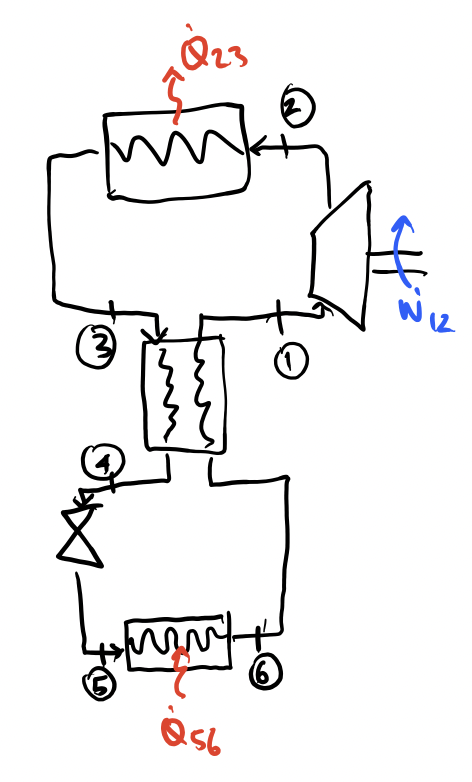 Q̇23
2
Ẇ12
3
1
4
5
6
Q̇56